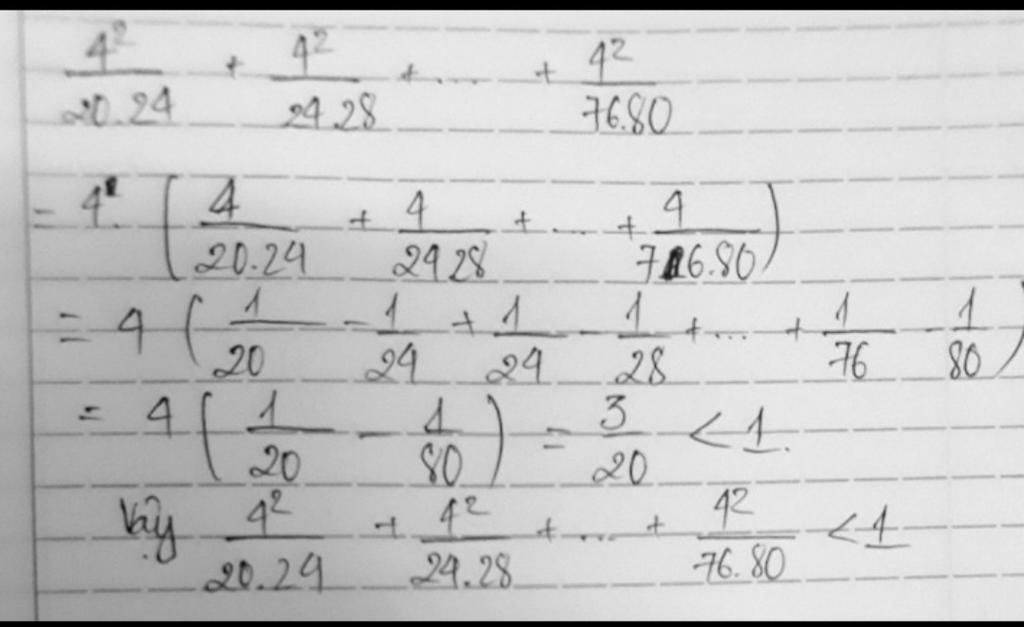 4²/20.24 + 4²/24.28 + ... + 4²/76.80
= 4. (4/20.24 + 4/24.28 + ... + 4/76.80)
= 4 (1/20 - 1/24 + 1/24 - 1/28 + ... + 1/76 - 1/80)
= 4 (1/20 - 1/80) = 3/20 < 1.
Vậy 4²/20.24 + 4²/24.28 + ... + 4²/76.80 < 1